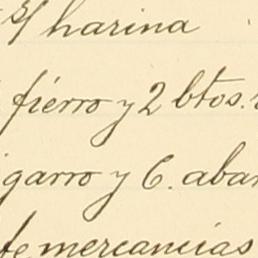 S/ harina
fierro y 2 btos.
garro y 6. aba
mercancias